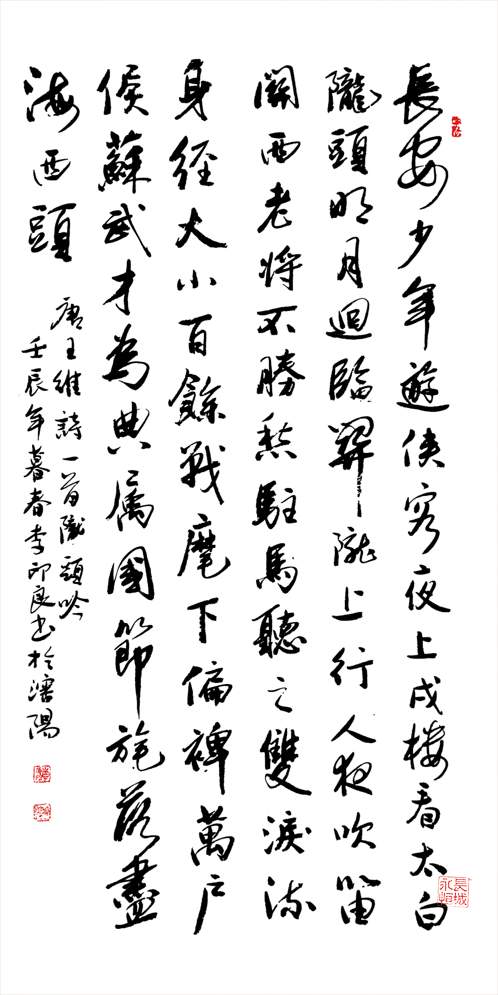 長安少年遊俠客夜上戍樓看太白
隴頭明月迴臨關隴上行人夜吹笛
關西老將不勝愁駐馬聽之雙淚流
身經大小百餘戰麾下偏裨萬戶
侯蘇武才為典屬國節旄落盡
海西頭
唐王維詩一首隴頭吟
壬辰年暮春李印良书於瀋陽
長城
永恒